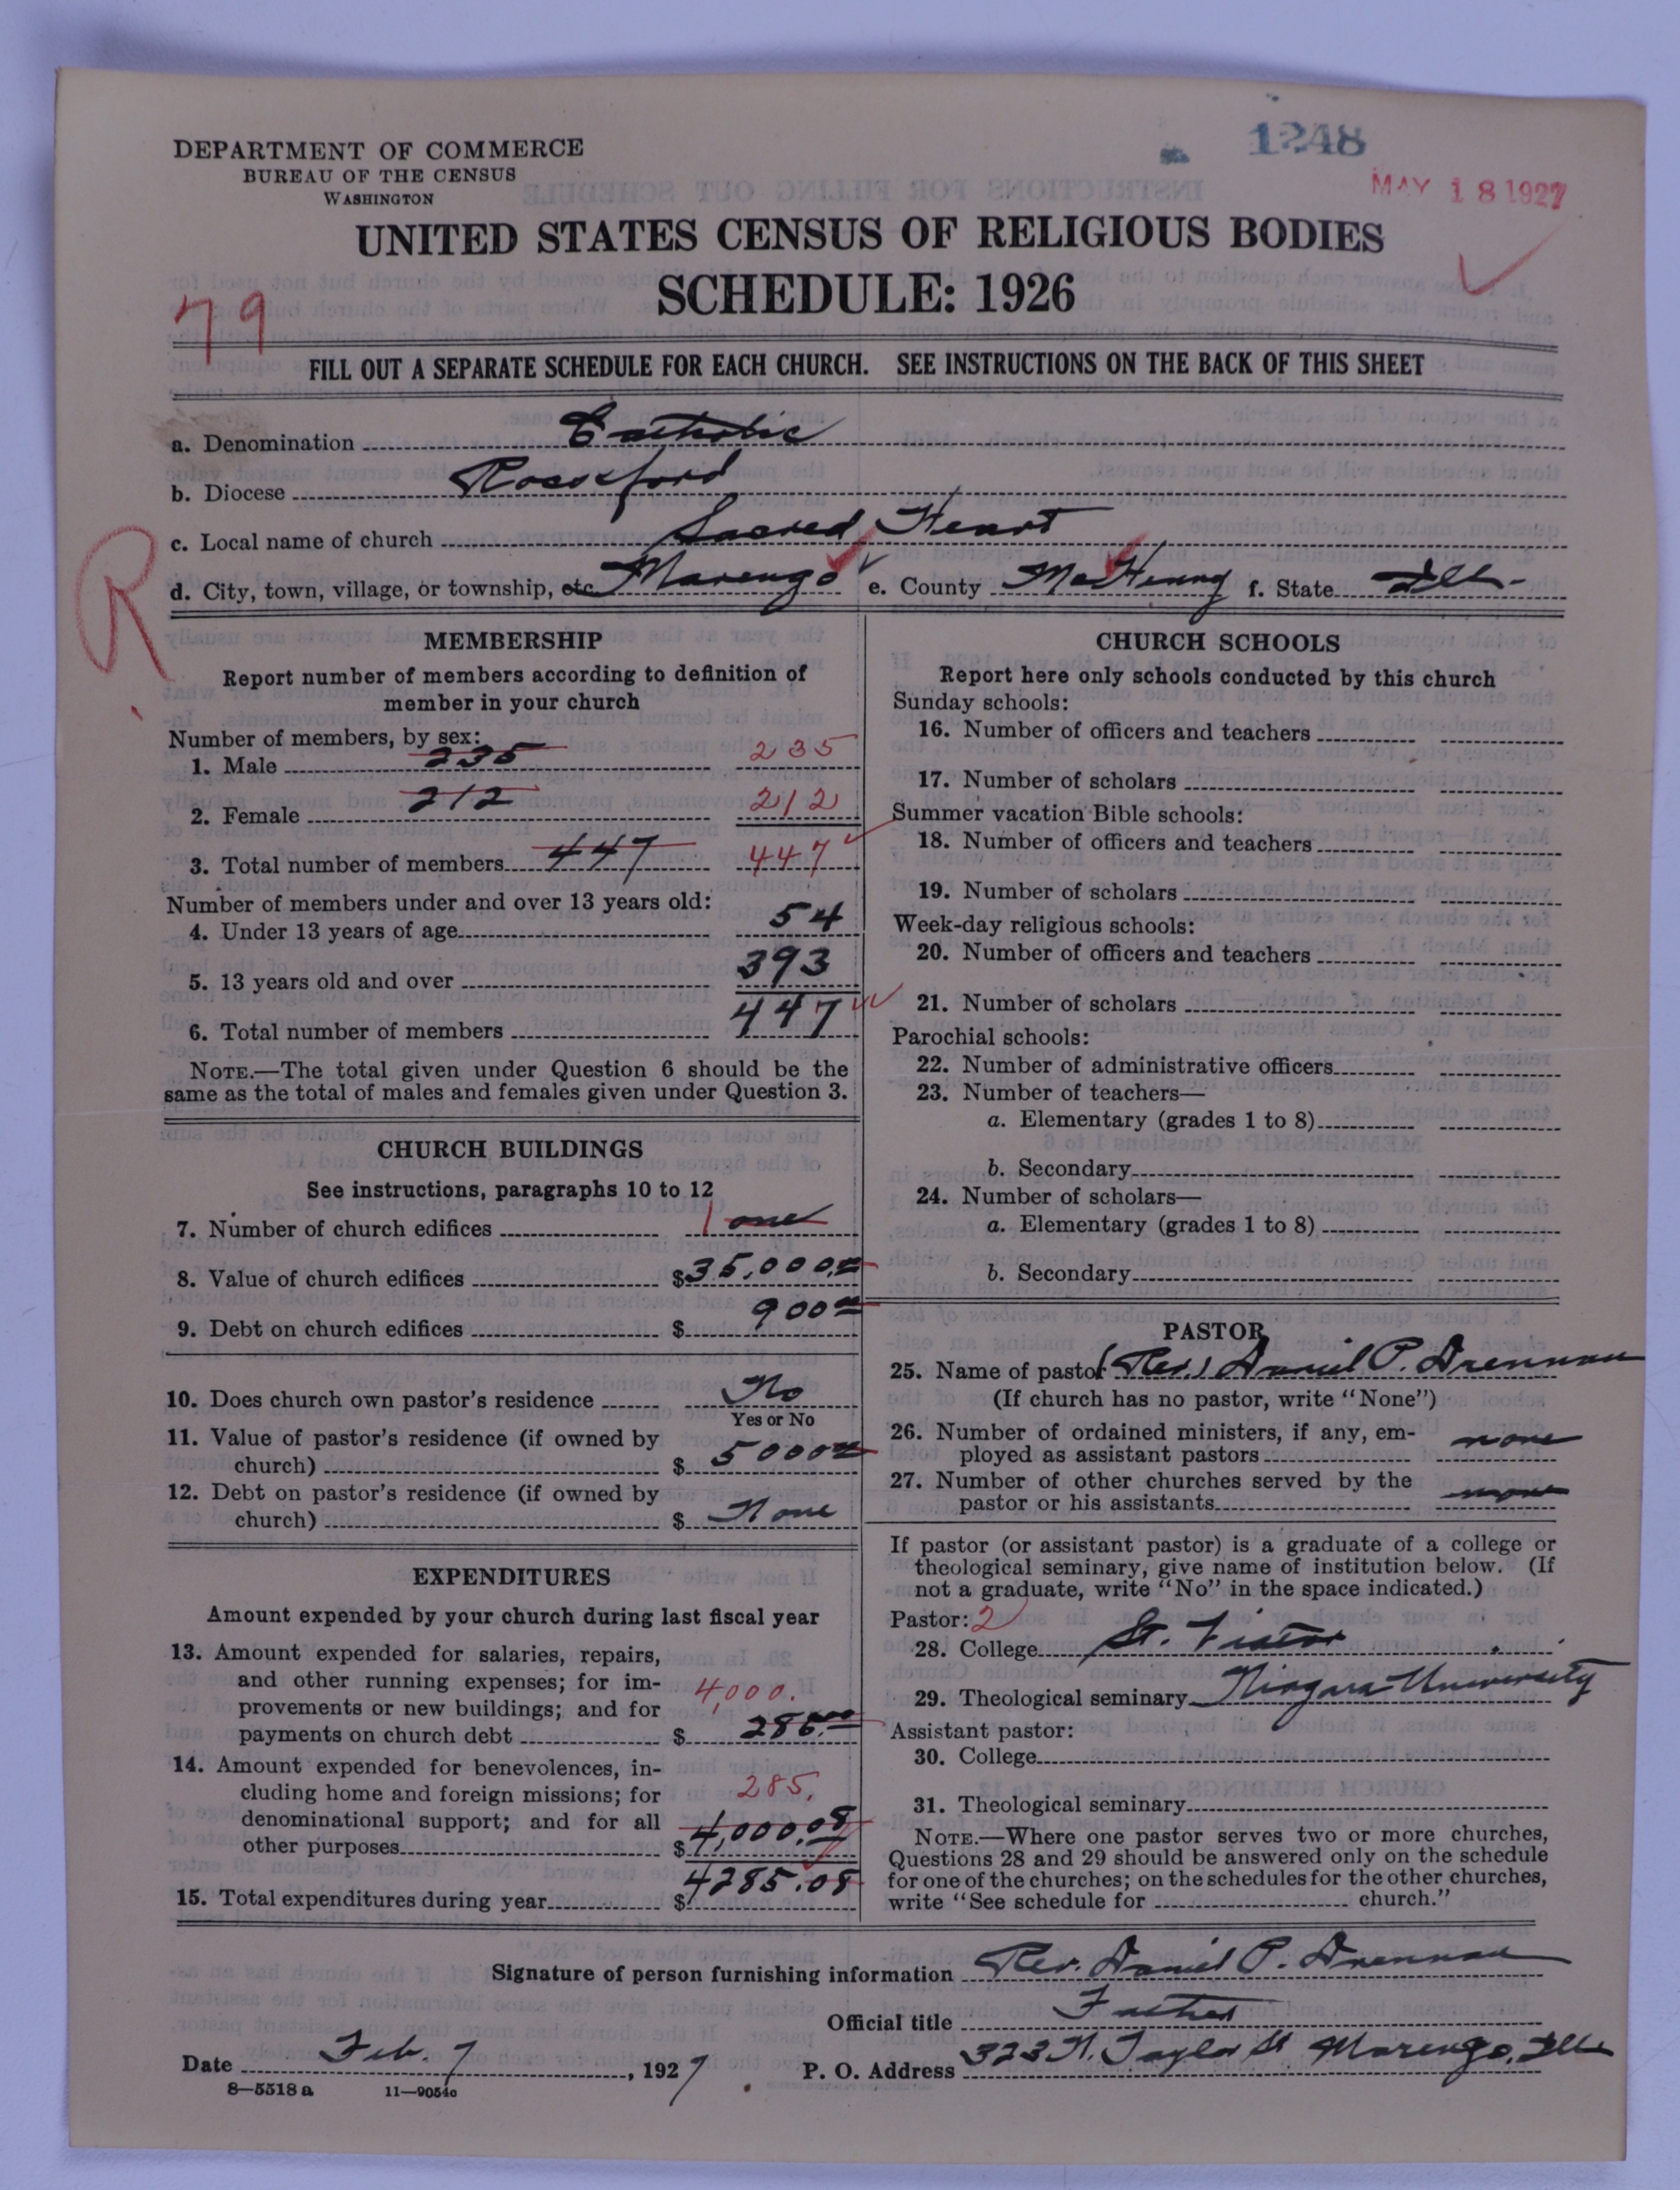 1248
MAY 18 1927
DEPARTMENT OF COMMERCE
BUREAU OF THE CENSUS
WASHINGTON
UNITED STATES CENSUS OF RELIGIOUS BODIES
SCHEDULE: 1926
79
FILL OUT A SEPARATE SCHEDULE FOR EACH CHURCH. SEE INSTRUCTIONS ON THE BACK OF THIS SHEET
a. Denomination Catholic
b. Diocese Rockford
c. Local name of church Sacred Heart
R
d. City, town, village, or township, etc. Marengo e. County McHenry f. State Ill.
MEMBERSHIP
Report number of members according to definition of
member in your church
Number of members, by sex:
1. Male 235 235
2. Female 212 212
3. Total number of members 447 447
Number of members under and over 13 years old:
4. Under 13 years of age 54
5. 13 years old and over 393
6. Total number of members 447
NOTE.—The total given under Question 6 should be the
same as the total of males and females given under Question 3.
CHURCH BUILDINGS
See instructions, paragraphs 10 to 12
7. Number of church edifices 1 one
8. Value of church edifices $35,000.00
9. Debt on church edifices $ 900.00
10. Does church own pastor's residence No
Yes or No
11. Value of pastor's residence (if owned by
church) $ 5000.00
12. Debt on pastor's residence (if owned by
church) $ None
EXPENDITURES
Amount expended by your church during last fiscal year
13. Amount expended for salaries, repairs,
and other running expenses; for im-
provements or new buildings; and for 4,000.
payments on church debt $ 285.00
14. Amount expended for benevolences, in-
cluding home and foreign missions; for 285.
denominational support; and for all
other purposes $ 4,000.08
15. Total expenditures during year $ 4285.08
CHURCH SCHOOLS
Report here only schools conducted by this church
Sunday schools:
16. Number of officers and teachers
17. Number of scholars
Summer vacation Bible schools:
18. Number of officers and teachers
19. Number of scholars
Week-day religious schools:
20. Number of officers and teachers
21. Number of scholars
Parochial schools:
22. Number of administrative officers
23. Number of teachers—
a. Elementary (grades 1 to 8)
b. Secondary
24. Number of scholars—
a. Elementary (grades 1 to 8)
b. Secondary
PASTOR
25. Name of pastor (Rev.) Daniel P. Drennan
(If church has no pastor, write "None")
26. Number of ordained ministers, if any, em-
ployed as assistant pastors none
27. Number of other churches served by the
pastor or his assistants none
If pastor (or assistant pastor) is a graduate of a college or
theological seminary, give name of institution below. (If
not a graduate, write "No" in the space indicated.)
Pastor: 2
28. College St. Viator
29. Theological seminary Niagara University
Assistant pastor:
30. College
31. Theological seminary
NOTE.—Where one pastor serves two or more churches,
Questions 28 and 29 should be answered only on the schedule
for one of the churches; on the schedules for the other churches,
write "See schedule for church."
Signature of person furnishing information Rev. Daniel P. Drennan
Official title Father
Date Feb. 7, 1927 P. O. Address 323 N. Taylor St Marengo, Ill.
8-5518 a 11-9054c